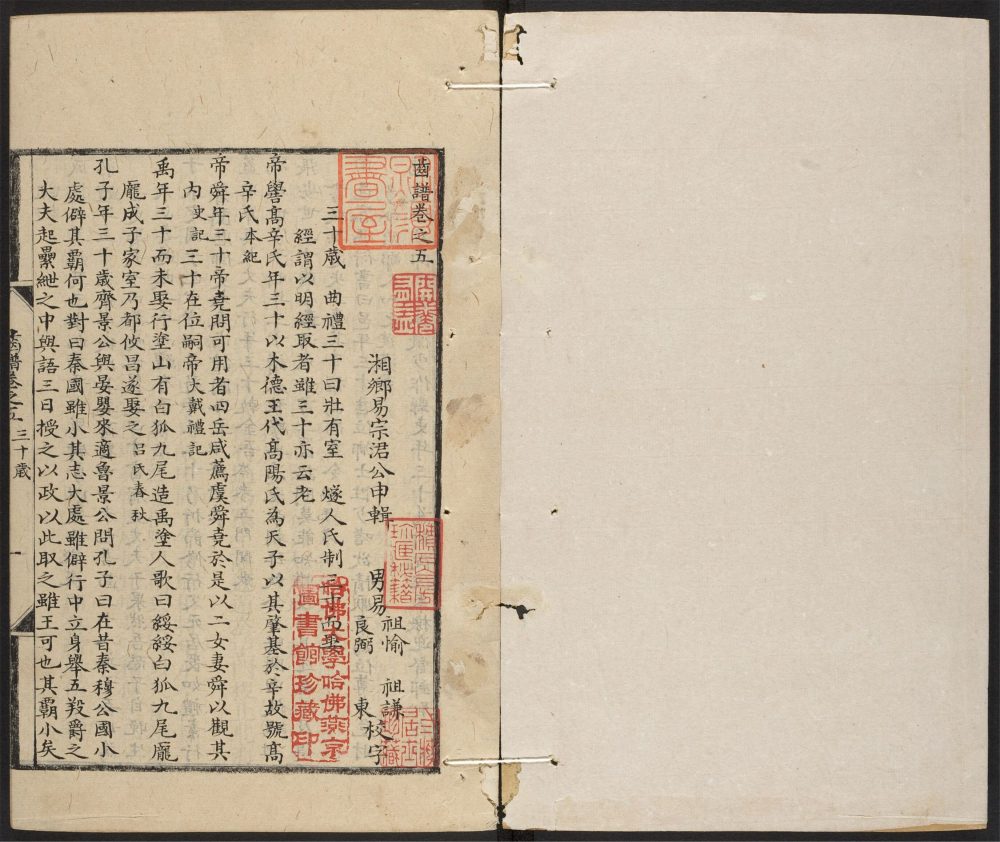 齒譜卷之五
湘鄉易宗涒公申輯
男易 祖愉 祖謙
良弼 東 校字
三十歲 曲禮三十曰壯有室 燧人氏制三十而娶
經謂以明經取者雖三十亦云老
帝嚳高辛氏年三十以木德王代高陽氏為天子以其肇基於辛故號高
辛氏本紀
帝舜年三十帝堯問可用者四岳咸薦虞舜堯於是以二女妻舜以觀其
內史記三十在位嗣帝大戴禮記
禹年三十而未娶行塗山有白狐九尾造禹塗人歌曰綏綏白狐九尾龐
龐成子家室乃都攸昌遂娶之呂氏春秋
孔子年三十歲齊景公與晏嬰來適魯景公問孔子曰在昔秦穆公國小
處僻其霸何也對曰秦國雖小其志大處雖僻行中立身舉五羖爵之
大夫起纍紲之中與語三日授之以政以此取之雖王可也其霸小矣
齒譜卷之五 三十歲 一
哈佛大學哈佛燕京
圖書館珍藏印
書屋
開卷
有益